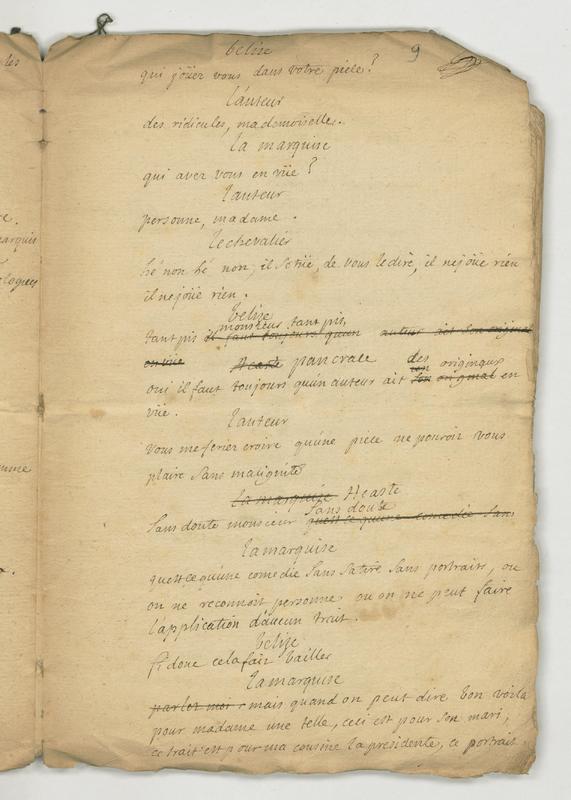 belise
9
qui joüez vous dans votre piece ?
l'auteur
des ridicules, mademoiselle.
la marquise
qui avez vous en vüe ?
l'auteur
personne, madame.
le chevalier
hé non hé non, il se tüe, de vous le dire, il ne joüe rien
il ne joüe rien.
belise
monsieur tant pis,
tant pis il faut toujours qu'un auteur ait son original
en vüe Acaste pancrace des originaux
oui il faut toujours qu'un auteur ait son original en
vüe.
l'auteur
vous me feriez croire qu'une piece ne pouroit vous
plaire sans malignité
la marquise Acaste
sans doute
sans doute monsieur qu'est ce qu'une comedie sans
la marquise
qu'est ce qu'une comedie sans satire sans portraits, ou
on ne reconnoit personne ou on ne peut faire
l'application d'aucun trait.
belise
fi donc cela fait bailler
la marquise
parlez moi mais quand on peut dire bon voila
pour madame une telle, ceci est pour son mari,
ce trait est pour ma cousine la presidente, ce portrait